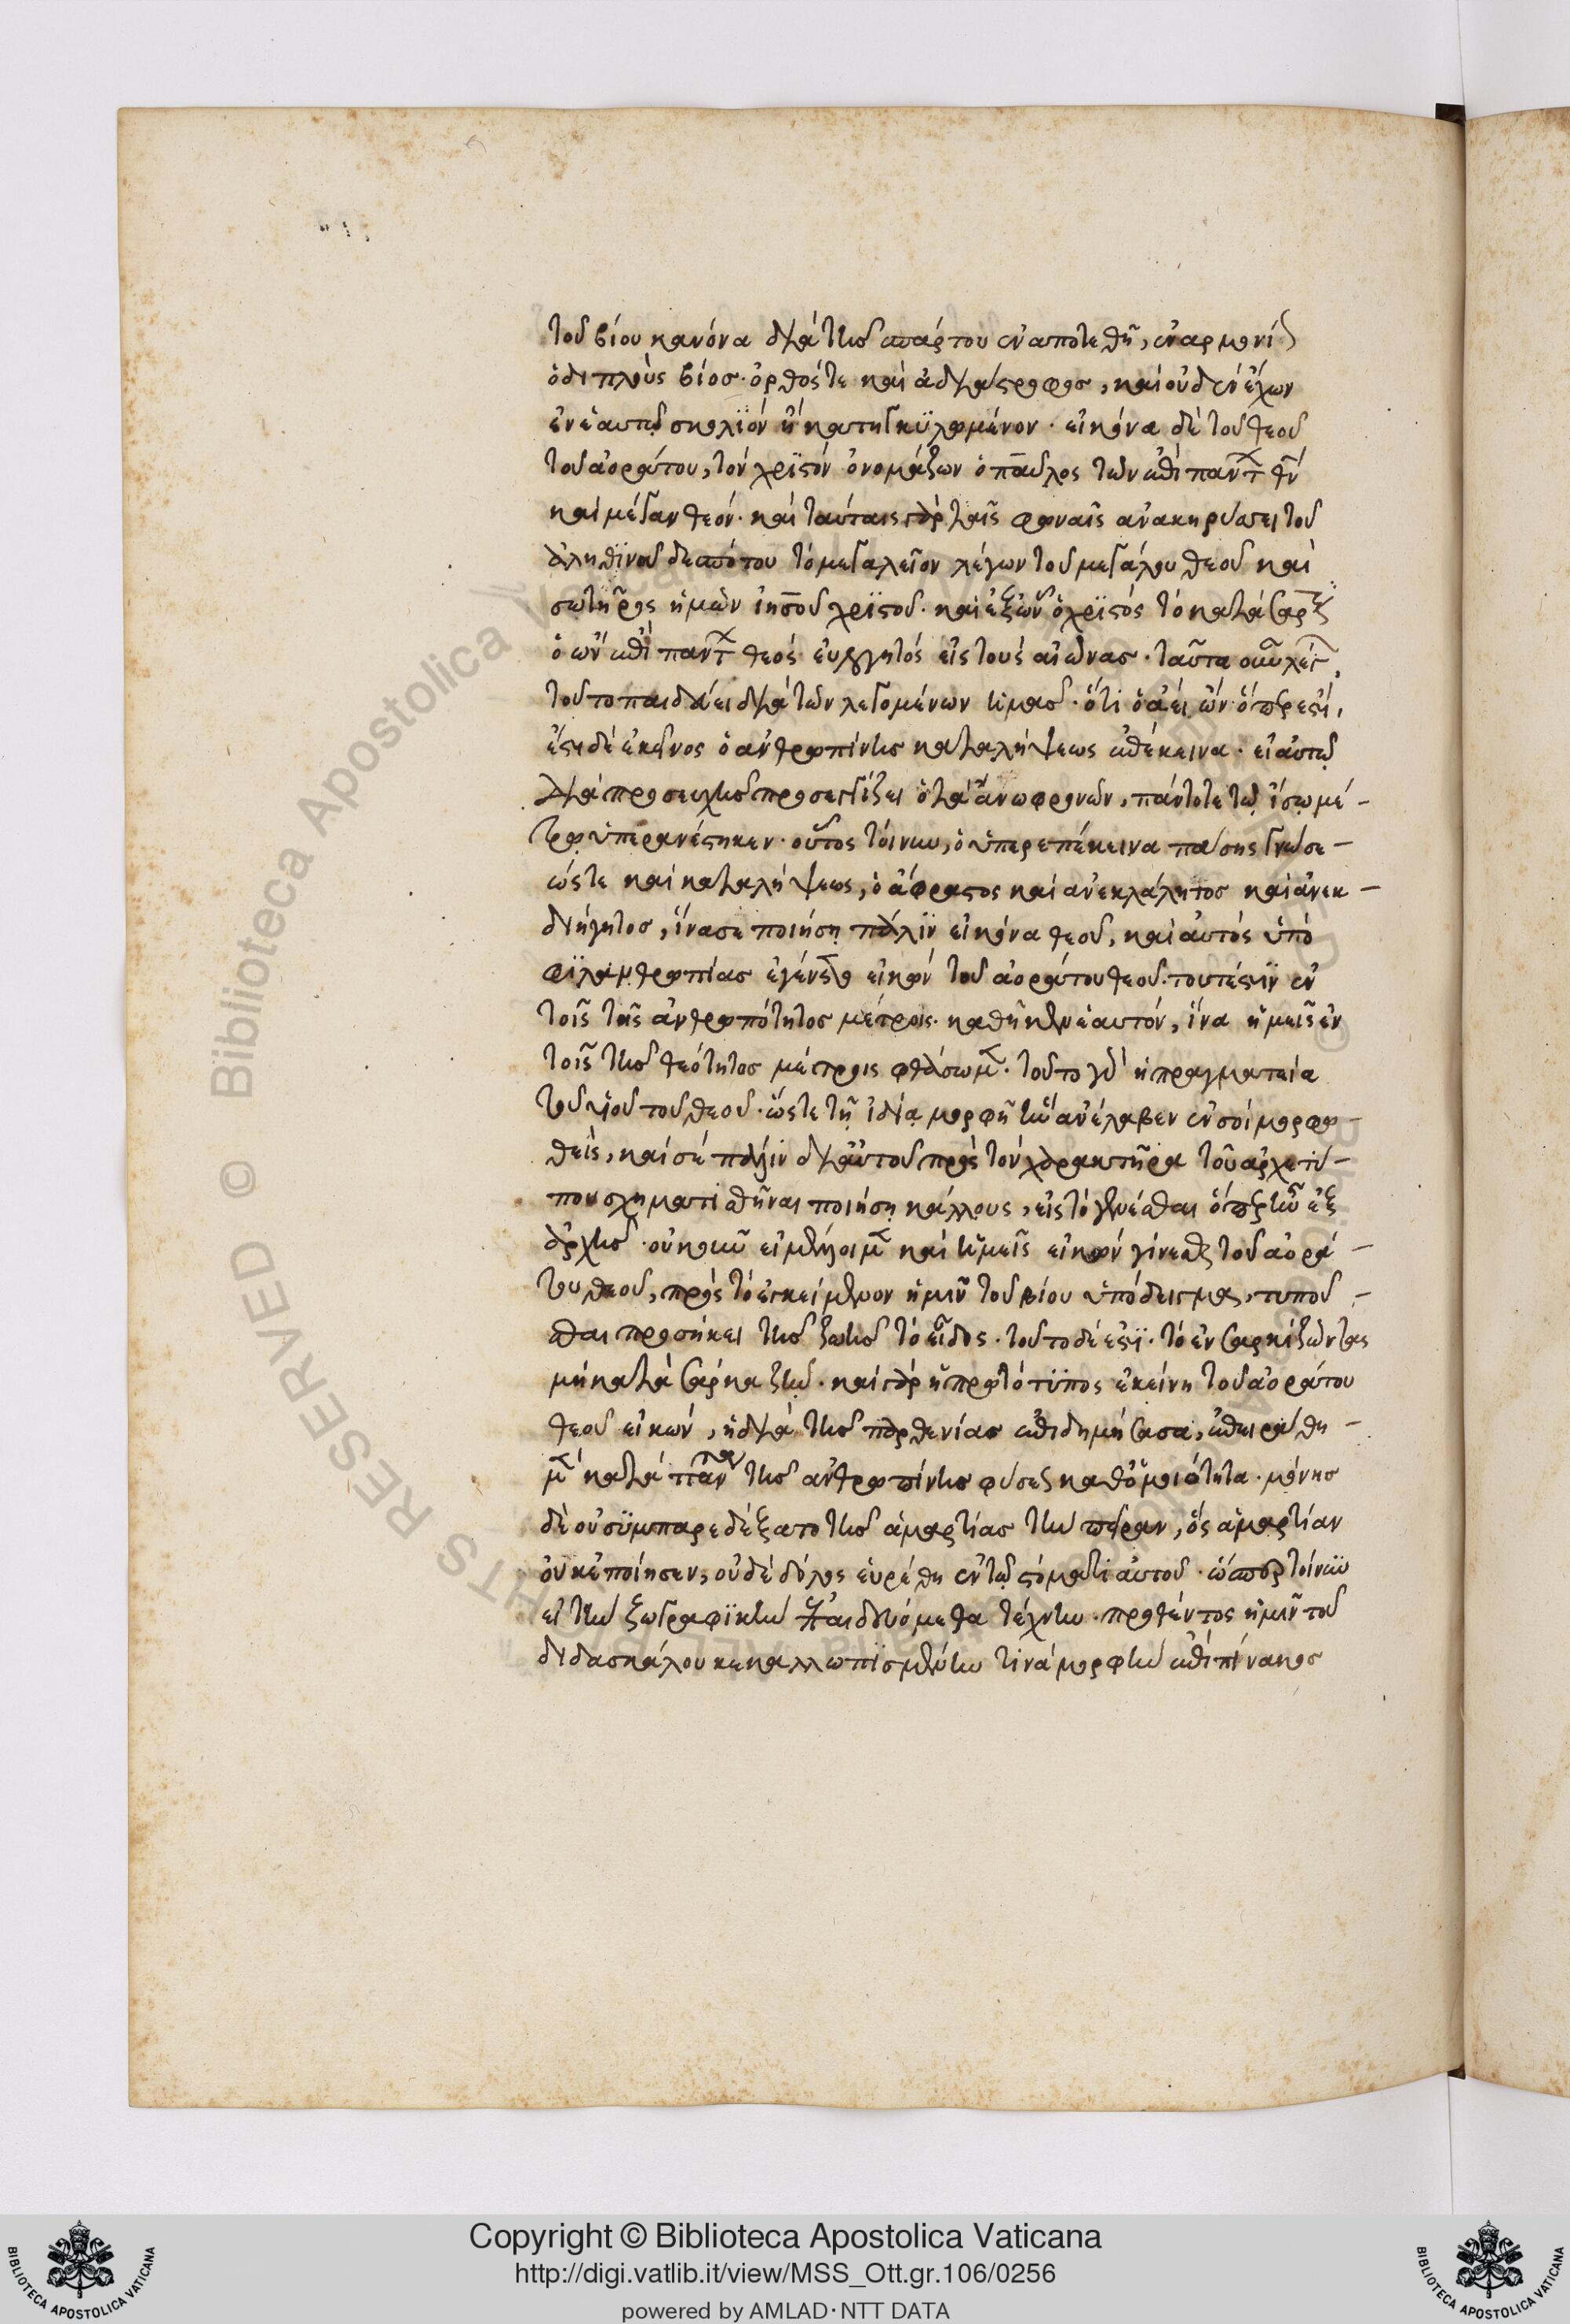 τοῦ βίου κανόνα διὰ τῆς σπάρτου ἐναποτεθῆ, ἐναρμονί
ὁ διπλοῦς βίος· ὀρθός τε καὶ ἀδιάστροφος, καὶ οὐδὲν ἔχων
ἐν ἑαυτῷ σκολϊόν ἢ κατηγκϋλωμένον· εἰκόνα δὲ τοῦ θεοῦ
τοῦ ἀοράτου, τὸν χρϊστόν ὀνομάζων ὁ παῦλος τὸν ἐπὶ πάντ
καὶ μέγαν θεόν· καὶ ταύταις γὰρ ταῖς φωναῖς ἀνακηρύσσει τοῦ
ἀληθϊνοῦ δεσπότου τὸ μεγαλεῖον λέγων τοῦ μεγάλου θεοῦ καὶ
σωτῆρος ἡμῶν ἰησοῦ χρϊστοῦ· καὶ ἐξ ὧν ὁ χρϊστός τὸ κατὰ σάρκ
ὁ ὢν ἐπὶ πάντ θεός εὐλογητός εἰς τοὺς αἰῶνας· ταῦτα οὖν λέγ,
τοῦτο παιδεύει διὰ τῶν λεγομένων ἡμᾶς· ὅτι ὁ ἀεί ὢν ὅπερ ἐστί,
ἔστι δὲ ἐκεῖνος ὁ ἀνθρωπίνης καταλήψεως ἐπέκεινα· εἰ αὐτῷ
διὰ προσευχῆς προσεγγίζει ὁ τὰ ἄνω φρονῶν, πάντοτε τῷ ἴσῳ μέ-
τρῳ ὑπερανέστηκεν· οὗτος τοίνυν, ὁ ὑπερεπέκεινα πάσης γνώσε-
ώς τε καὶ καταλήψεως, ὁ ἄφραστος καὶ ἀνεκλάλητος καὶ ἀνεκ-
διήγητος, ἵνα σε ποιήσῃ πάλϊν εἰκόνα θεοῦ, καὶ αὐτός ὑπὸ
φϊλανθρωπίας ἐγένετο εἰκών τοῦ ἀοράτου θεοῦ· τουτέστϊν ἐν
τοῖς τῆς ἀνθρωπότητος μέτροις· καθῆκεν ἑαυτόν, ἵνα ἡμεῖς ἐν
τοῖς τῆς θεότητος μέτροις φθάσωμ· τοῦτο γὰρ ἡ πραγματεία
τοῦ υἱοῦ τοῦ θεοῦ· ὥστε τῇ ἰδίᾳ μορφῇ ἣν ἀνέλαβεν ἐν σοί μορφω-
θείς, καὶ σέ πάλιν δι' αὐτοῦ πρὸς τὸν χαρακτῆρα τοῦ ἀρχετύ-
που σχηματισθῆναι ποιήσῃ κάλλους, εἰς τὸ γενέσθαι ὅπερ ἦν ἐξ
ἀρχῆς· οὐκοῦν εἰ μέλλοιμ καὶ ἡμεῖς εἰκών γίνεσθαι τοῦ ἀορά-
του θεοῦ, πρὸς τὸ ἐκκείμενον ἡμῖν τοῦ βίου ὑπόδειγμα, τυποῦ-
σθαι προσήκει τῆς ζωῆς τὸ εἶδος· τοῦτο δέ ἐστϊ· τὸ ἐν σαρκί ζῶντας
μή κατὰ σάρκα ζῆν· καὶ γὰρ ἡ πρωτότϋπος ἐκείνη τοῦ ἀοράτου
θεοῦ εἰκών, ἡ διὰ τῆς παρθενίας ἐπιδημήσασα, ἐπειράθη
μ κατὰ πάντα τῆς ἀνθρωπίνης φύσεως καθ' ὁμοιότητα· μόνης
δὲ οὐ σϋμπαρεδέξατο τῆς ἁμαρτίας τὴν πεῖραν, ὅς ἁμαρτίαν
οὐκ ἐποίησεν, οὐδὲ δόλος εὑρέθη ἐν τῷ στόματι αὐτοῦ· ὥσπερ τοίνϋν
εἰ τὴν ζωγραφϊκὴν ἐπαιδευόμεθα τέχνην· προθέντος ἡμῖν τοῦ
διδασκάλου κεκαλλωπϊσμένην τινά μορφὴν ἐπὶ πίνακος